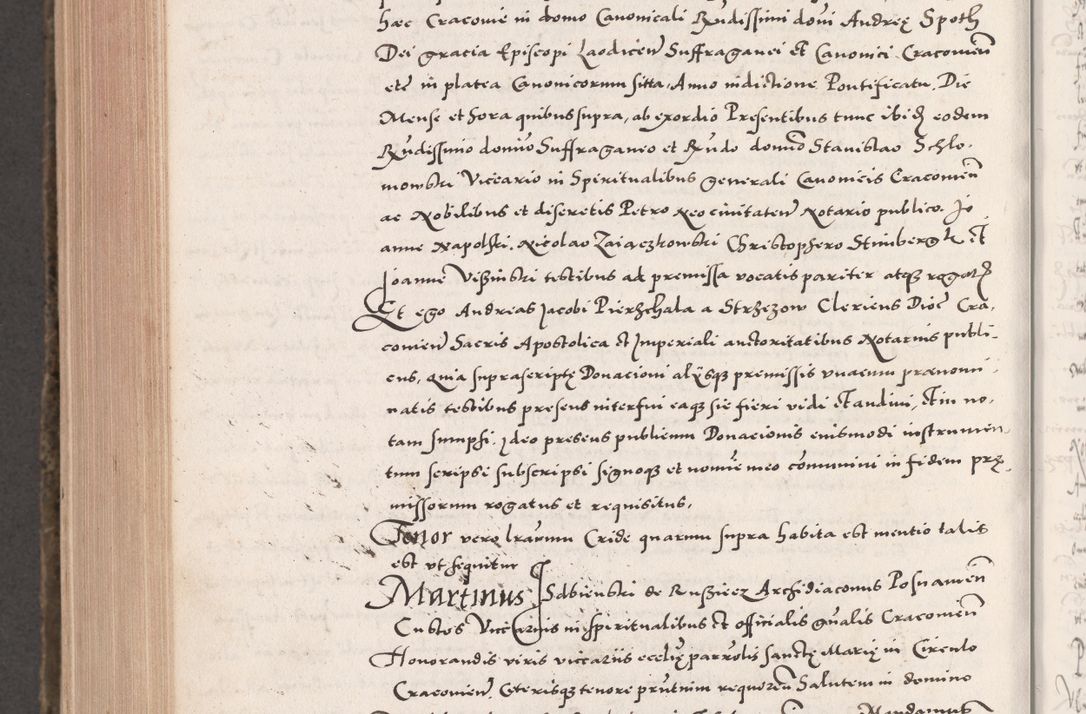 hæc Cracovie in domo Canonicali Rndissimi domi Andreę Spoth
Dei gracia Episcopi Laodicen Suffraganei et Canonici Cracovien
etc in platea Canonicorum sitta, Anno indictione Pontificatu, Die
Mense et hora quibus supra, ab exordio Presentibus tunc ibidem eodem
Rndissimo domino Suffraganeo et Rndo domino Stanislao Schlo-
mowski Viccario in Spiritualibus generali Canonicis Cracovien
ac Nobilibus et discretis Petro Neocivitaten Notario publico. Jo
anne Napolski, Nicolao Zaiączkowski Christophero Stinbergk et
Joanne Vissinski testibus ad premissa vocatis pariter atque rogatis
Et ego Andreas Jacobi Pierzchala a Strzezow Clericus Dioc Cra-
covien Sacris Apostolica et Imperiali auctoritatibus Notarius publi-
cus, Quia suprascriptę Donacioni alijsque premissis unacum prænomi-
natis testibus presens interfui eaque sic fieri vidi et audivi, et in no-
tam sumpsi. Ideo presens publicum Donacionis euismodi instrumen-
tum scripsi subscripsi signoque et nomine meo communivi in fidem prę-
missorum rogatus et requisitus.
Tenor vero lrarum Cride quarum supra habita est mentio talis
est ut sequitur
Martinus Isdbienski de Russiecz Archidiaconus Posnanien
Custos Viccarius in spiritualibus et officialis gnalis Cracovien
Honorandis viris viccariis ecclię parrolis sanctę Marię in Circulo
Cracovien, Ceterisque tenore prntium requeren Salutem in domino
Mandamus